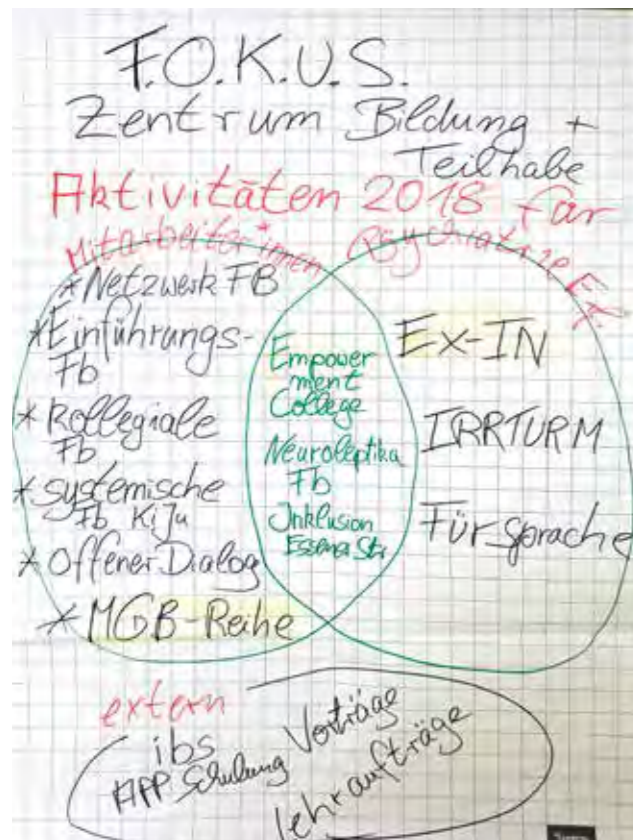 F.O.K.U.S.
Zentrum Bildung +
Teilhabe
Aktivitäten 2018 für
Mitarbeiter*innen
Psychiatrie Erf.
* Netzwerk FB
* Einführungs-
Fb
* Kollegiale
Fb
* systemische
Fb KiJu
* Offener Dialog
* MGB-Reihe
Empower
ment
College
Neuroleptika
Fb
Inklusion
Essener Str
Ex-IN
IRRTURM
Fürsprache
extern
ibs
APP Schulung
Vorträge
Lehraufträge